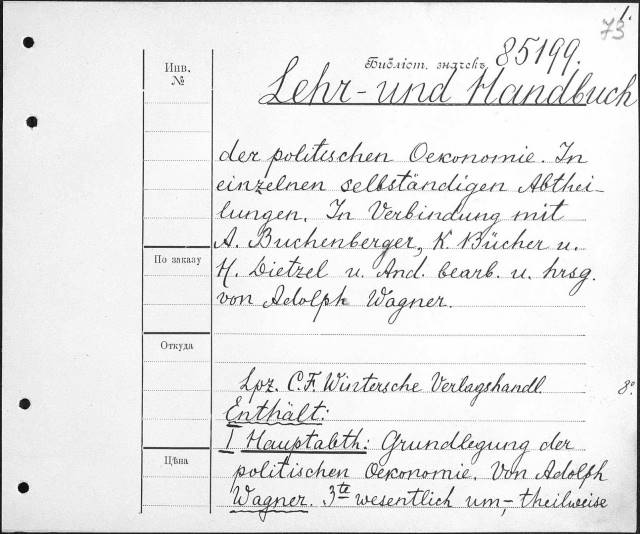 1.
73
Инв.
№
Библіот. значекъ 85199.
Lehr- und Handbuch
der politischen Oekonomie. In
einzelnen selbständigen Abthei-
lungen. In Verbindung mit
A. Buchenberger, K. Bücher u.
По заказу
H. Dietzel u. And. bearb. u. hrsg.
von Adolph Wagner.
Откуда
Lpz. C.F. Wintersche Verlagshandl. 8°
Enthält:
I Hauptabth: Grundlegung der
Цѣна
politischen Oekonomie. Von Adolph
Wagner. 3te wesentlich um-, theilweise